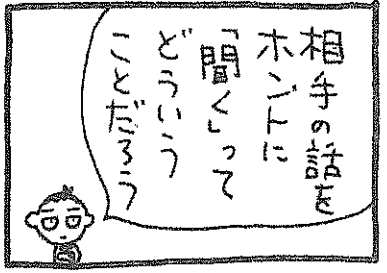 相手の話を
ホントに
「聞く」って
どういう
ことだろう